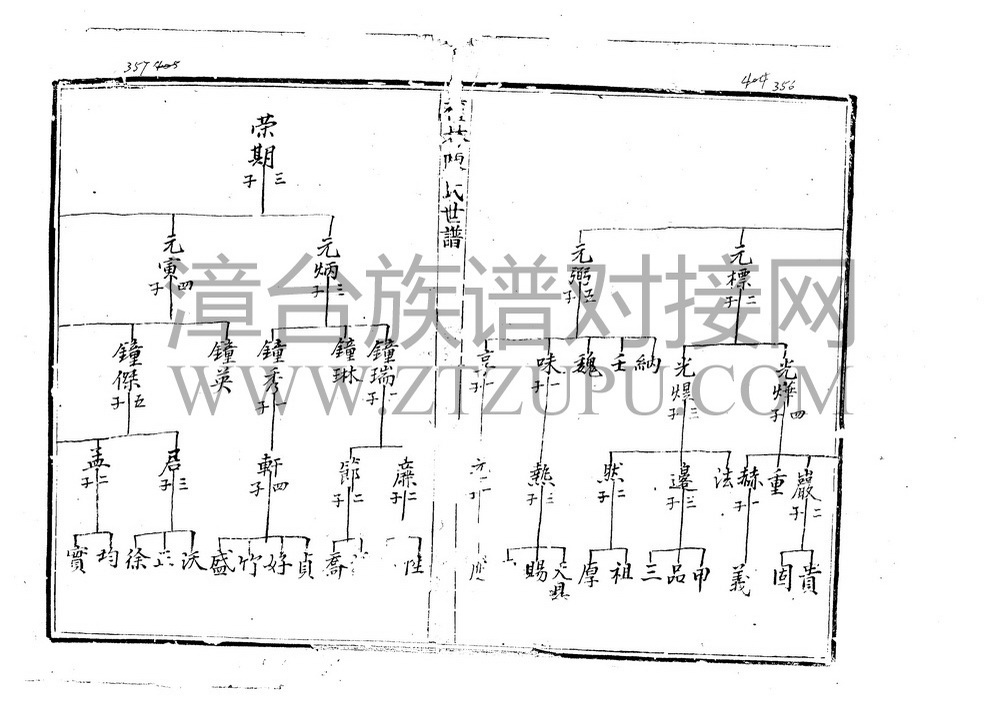 404 356
元標 二子
元弼 五子
光燁 四子
光焜 三子
納
壬
魏
味 一子
京 一子
巖 二子
重
赫 一子
法
邊 三子
然 二子
熱 三子
貴
固
義
甲
品
三
祖
厚
賜
世譜
357 405
荣期 三子
元炳 三子
元寅 四子
鐘瑞 一子
鐘琳
鐘秀 一子
鐘英
鐘傑 五子
廉 二子
節 二子
軒 四子
君 三子
孟 二子
喬
貞
好
竹
盛
沃
正
徐
均
實
漳台族谱对接网
WWW.ZTZUPU.COM